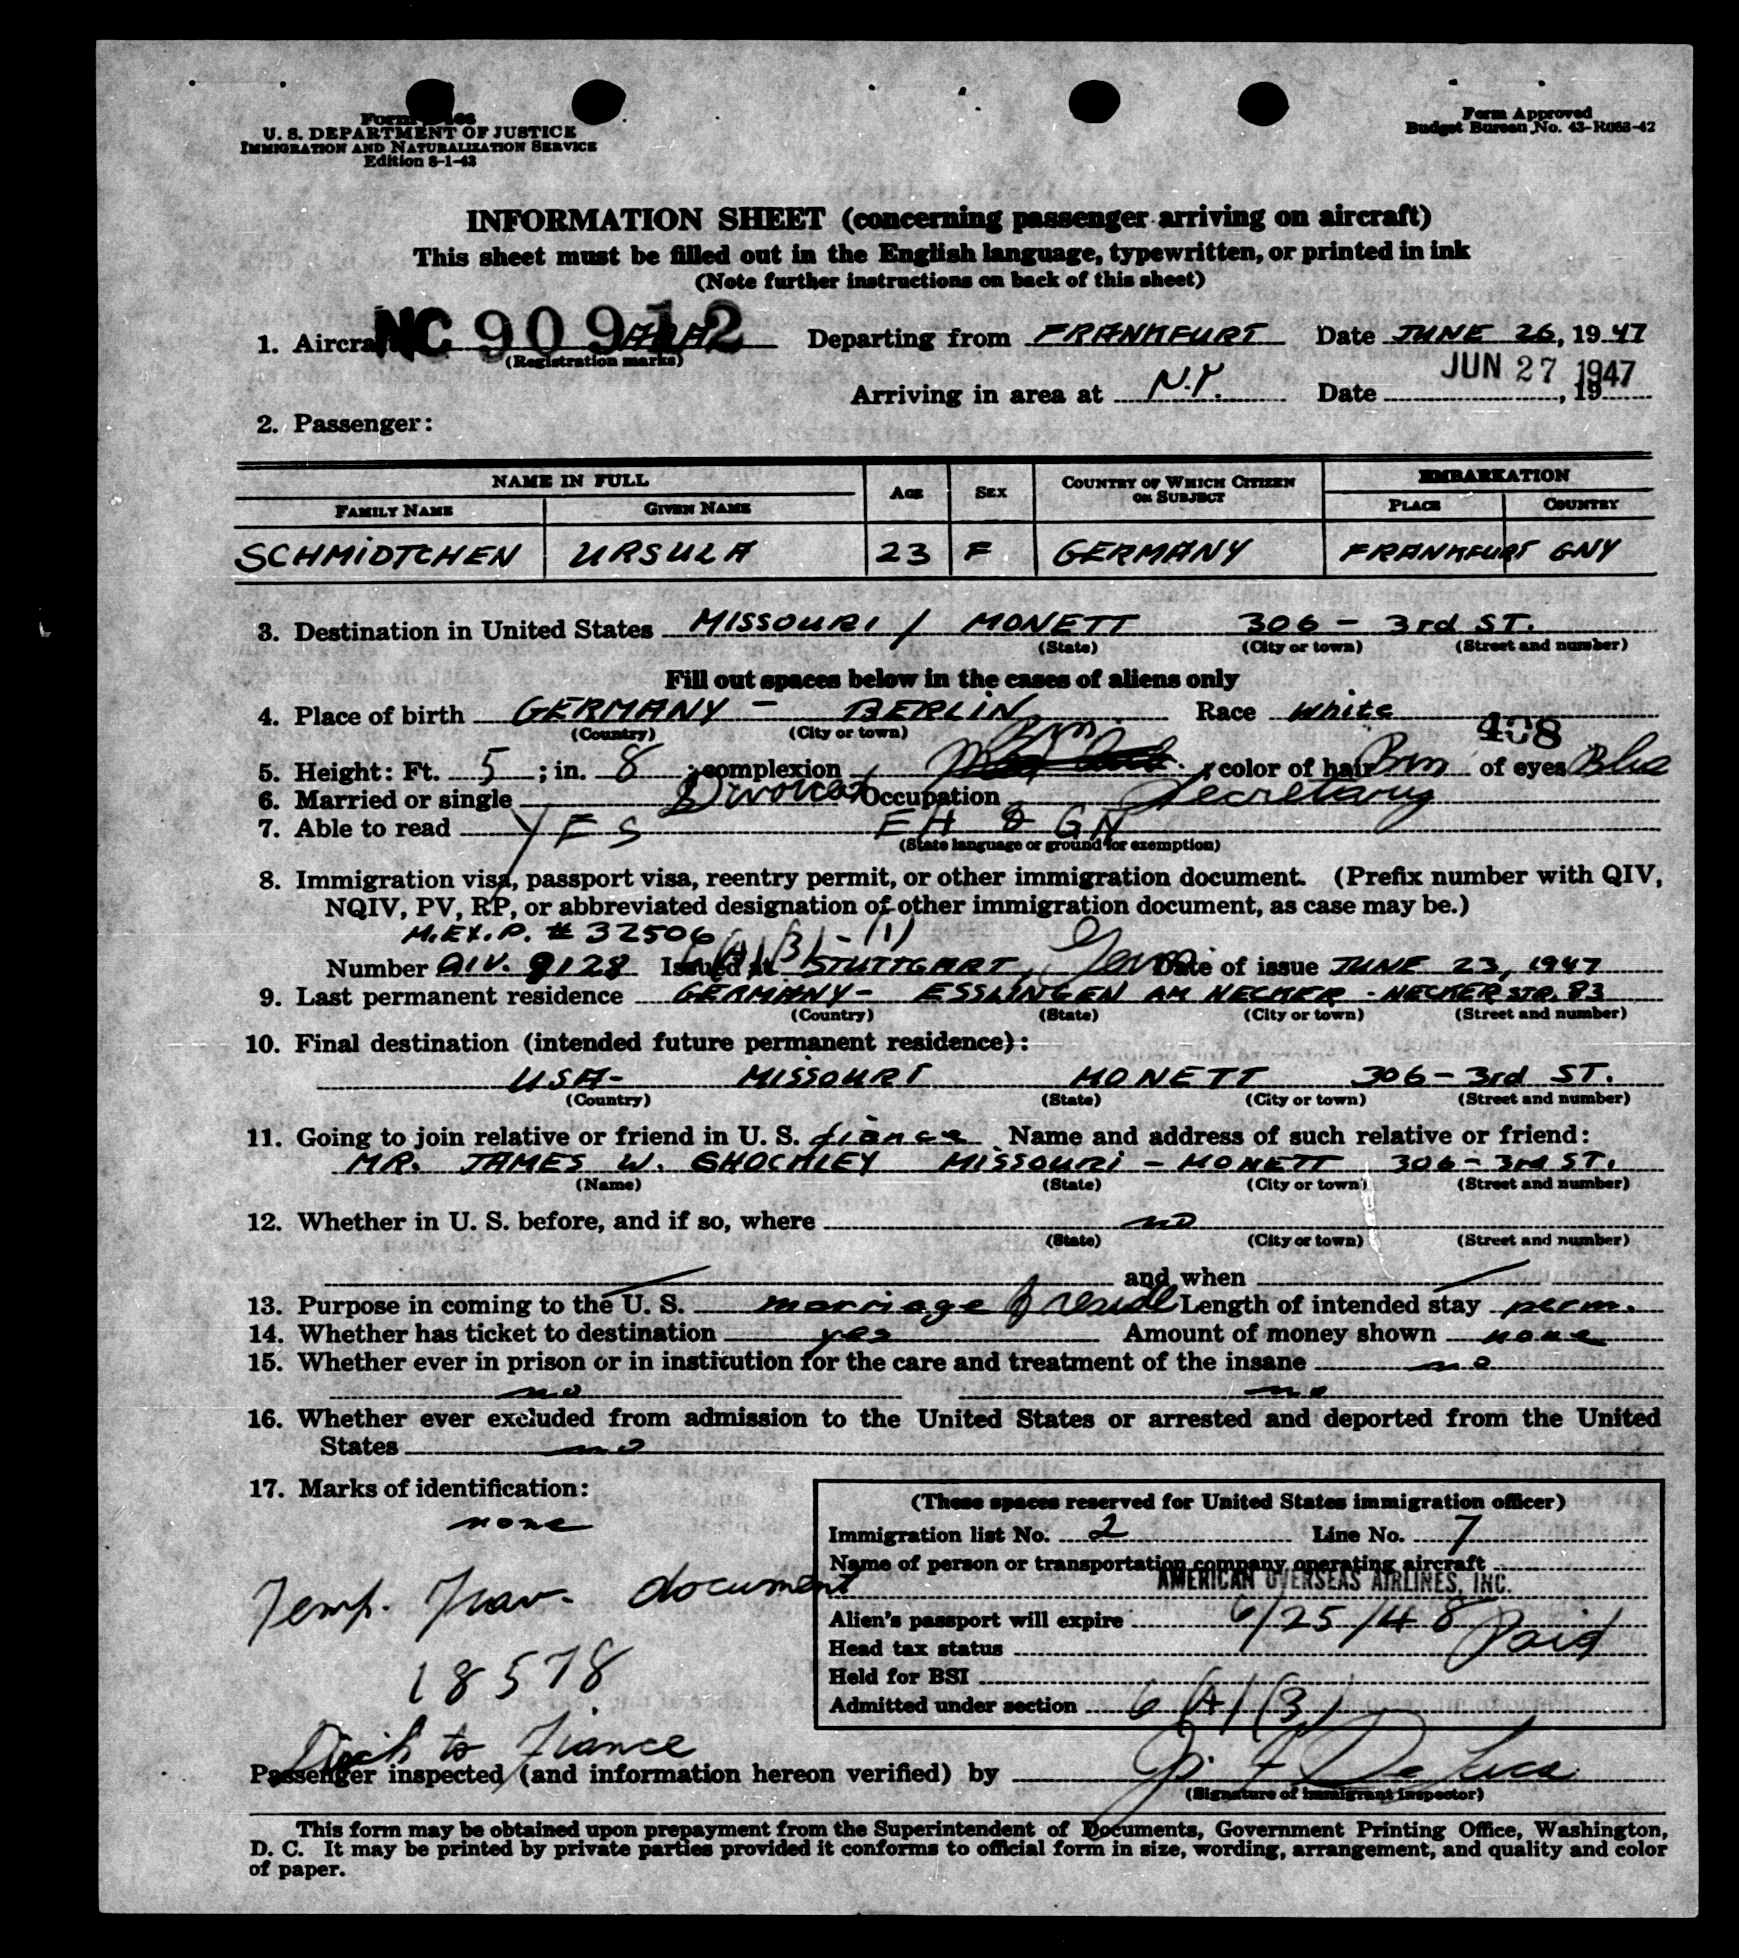 Form
U. S. DEPARTMENT OF JUSTICE
IMMIGRATION AND NATURALIZATION SERVICE
Edition 8-1-43
Form Approved
Budget Bureau No. 43-R063-42
INFORMATION SHEET (concerning passenger arriving on aircraft)
This sheet must be filled out in the English language, typewritten, or printed in ink
(Note further instructions on back of this sheet)
1. Aircraft NC 90912 AOA Departing from FRANKFURT Date JUNE 26, 1947
(Registration marks)
JUN 27 1947
Arriving in area at N.Y. Date , 19
2. Passenger:
NAME IN FULL AGE SEX COUNTRY OF WHICH CITIZEN OR SUBJECT EMBARKATION
FAMILY NAME GIVEN NAME PLACE COUNTRY
SCHMIDTCHEN URSULA 23 F GERMANY FRANKFURT GNY
3. Destination in United States MISSOURI / MONETT 306 - 3rd ST.
(State) (City or town) (Street and number)
Fill out spaces below in the cases of aliens only
4. Place of birth GERMANY - BERLIN Race white
(Country) (City or town)
408
5. Height: Ft. 5 ; in. 8 ; complexion Brn , color of hair Brn of eyes Blue
6. Married or single Divorced Occupation Secretary
7. Able to read YES EH & GN
(State language or ground for exemption)
8. Immigration visa, passport visa, reentry permit, or other immigration document. (Prefix number with QIV,
NQIV, PV, RP, or abbreviated designation of other immigration document, as case may be.)
M.EX.P. # 32506 6(A)(3)-(1)
Number QIV. 9128 Issued at STUTTGART, Germ Date of issue JUNE 23, 1947
9. Last permanent residence GERMANY - ESSLINGEN AM NECKER - NECKERSTR. 83
(Country) (State) (City or town) (Street and number)
10. Final destination (intended future permanent residence):
USA- MISSOURI MONETT 306 - 3rd ST.
(Country) (State) (City or town) (Street and number)
11. Going to join relative or friend in U. S. fiance Name and address of such relative or friend:
MR. JAMES W. SHOCKLEY MISSOURI - MONETT 306 - 3rd ST.
(Name) (State) (City or town) (Street and number)
12. Whether in U. S. before, and if so, where no
(State) (City or town) (Street and number)
and when
13. Purpose in coming to the U. S. marriage & reside Length of intended stay perm.
14. Whether has ticket to destination yes Amount of money shown none
15. Whether ever in prison or in institution for the care and treatment of the insane no
no no
16. Whether ever excluded from admission to the United States or arrested and deported from the United
States no
17. Marks of identification:
none
Temp. Trav. document
18578
to Fiance
(These spaces reserved for United States immigration officer)
Immigration list No. 2 Line No. 7
Name of person or transportation company operating aircraft
AMERICAN OVERSEAS AIRLINES, INC.
Alien's passport will expire 6/25/48
Head tax status Paid
Held for BSI
Admitted under section 6(A)(3)
Passenger inspected (and information hereon verified) by J. F. DeLuca
(Signature of immigrant inspector)
This form may be obtained upon prepayment from the Superintendent of Documents, Government Printing Office, Washington,
D. C. It may be printed by private parties provided it conforms to official form in size, wording, arrangement, and quality and color
of paper.